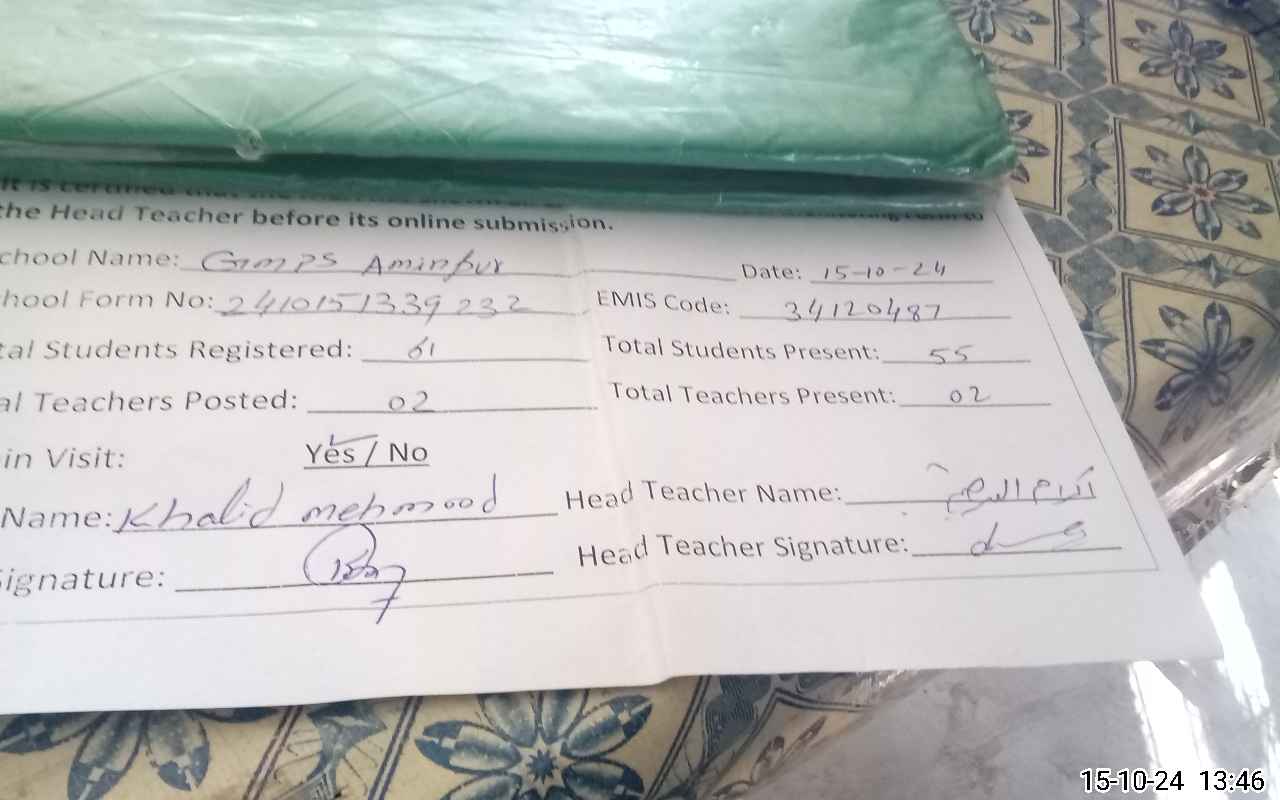 It is certified that the
the Head Teacher before its online submission.
chool Name: GMPS Aminpur Date: 15-10-24
hool Form No: 2410151339232 EMIS Code: 34120487
tal Students Registered: 61 Total Students Present: 55
al Teachers Posted: 02 Total Teachers Present: 02
in Visit: Yes / No
Name: Khalid mehmood Head Teacher Name:
ignature: Head Teacher Signature:
15-10-24 13:46